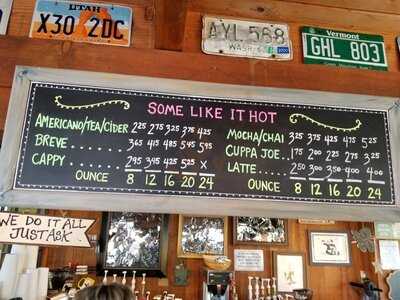 UTAH
X30 2DC
AYL568
WASH
Vermont
GHL 803
SOME LIKE IT HOT
AMERICANO/TEA/CIDER 225 275 325 375 425
BREVE 365 415 485 545 595
CAPPY 295 345 425 525 X
OUNCE 8 12 16 20 24
MOCHA/CHAI 325 375 425 475 525
CUPPA JOE 175 200 225 275 325
LATTE 250 300 350 400 400
OUNCE 8 12 16 20 24
WE DO IT ALL
JUST ASK.